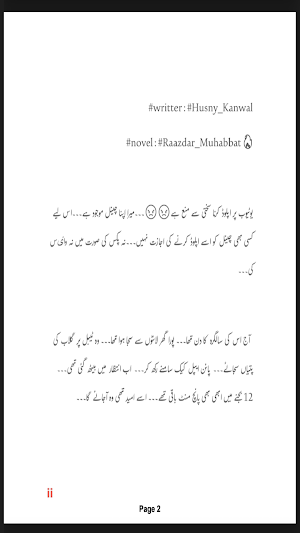 #writter:#Husny_Kanwal
#novel:#Raazdar_Muhabbat
یوٹیوب پر اپلوڈ کرنا سختی سے منع ہے😡😡۔۔۔میرا اپنا چینل موجود ہے۔۔۔اس لیے
کسی بھی چینل کو اسے اپلوڈ کرنے کی اجازت نہیں۔۔۔نہ پکس کی صورت میں نہ وائس
کی۔۔۔
آج اس کی سالگرہ کا دن تھا۔۔۔ پورا گھر لائٹوں سے سجا ہوا تھا۔۔۔ وہ ٹیبل پر گلاب کی
پتیاں سجائے۔۔۔ پائن ایپل کیک سامنے رکھ کر۔۔۔ اب انتظار میں بیٹھ گئی تھی۔۔۔
12 بجنے میں ابھی بھی پانچ منٹ باقی تھے۔۔۔ اسے امید تھی وہ آجائے گا۔۔۔
ii
Page 2